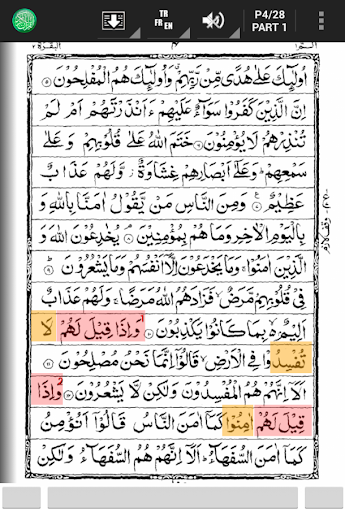 TR
FR
EN
P4/28
PART 1
البقرة ٢
اُولٰٓئِكَ عَلٰى هُدًى مِّنْ رَّبِّهِمْ وَاُولٰٓئِكَ هُمُ الْمُفْلِحُوْنَ ۝
اِنَّ الَّذِيْنَ كَفَرُوْا سَوَآءٌ عَلَيْهِمْ ءَاَنْذَرْتَهُمْ اَمْ لَمْ
تُنْذِرْهُمْ لَا يُؤْمِنُوْنَ ۝ خَتَمَ اللّٰهُ عَلٰى قُلُوْبِهِمْ وَ عَلٰى
سَمْعِهِمْ ؕ وَعَلٰٓى اَبْصَارِهِمْ غِشَاوَةٌ ؗ وَّلَهُمْ عَذَابٌ
عَظِيْمٌ ۝ وَمِنَ النَّاسِ مَنْ يَّقُوْلُ اٰمَنَّا بِاللّٰهِ وَ
بِالْيَوْمِ الْاٰخِرِ وَمَا هُمْ بِمُؤْمِنِيْنَ ۝ يُخٰدِعُوْنَ اللّٰهَ وَ
الَّذِيْنَ اٰمَنُوْا ۚ وَمَا يَخْدَعُوْنَ اِلَّآ اَنْفُسَهُمْ وَمَا يَشْعُرُوْنَ ۝
فِيْ قُلُوْبِهِمْ مَّرَضٌ ۙ فَزَادَهُمُ اللّٰهُ مَرَضًا ۚ وَلَهُمْ عَذَابٌ
اَلِيْمٌۢ ۙ۬ بِمَا كَانُوْا يَكْذِبُوْنَ ۝ وَاِذَا قِيْلَ لَهُمْ لَا
تُفْسِدُوْا فِي الْاَرْضِ ۙ قَالُوْٓا اِنَّمَا نَحْنُ مُصْلِحُوْنَ ۝
اَلَآ اِنَّهُمْ هُمُ الْمُفْسِدُوْنَ وَلٰكِنْ لَّا يَشْعُرُوْنَ ۝ وَاِذَا
قِيْلَ لَهُمْ اٰمِنُوْا كَمَآ اٰمَنَ النَّاسُ قَالُوْٓا اَنُؤْمِنُ
كَمَآ اٰمَنَ السُّفَهَآءُ ؕ اَلَآ اِنَّهُمْ هُمُ السُّفَهَآءُ وَلٰكِنْ